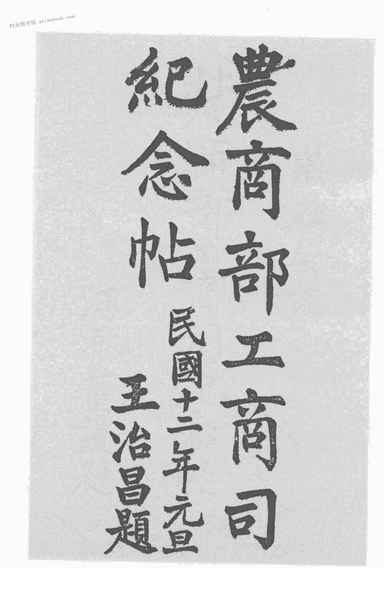 農商部工商司
紀念帖
民國十二年元旦
王治昌題